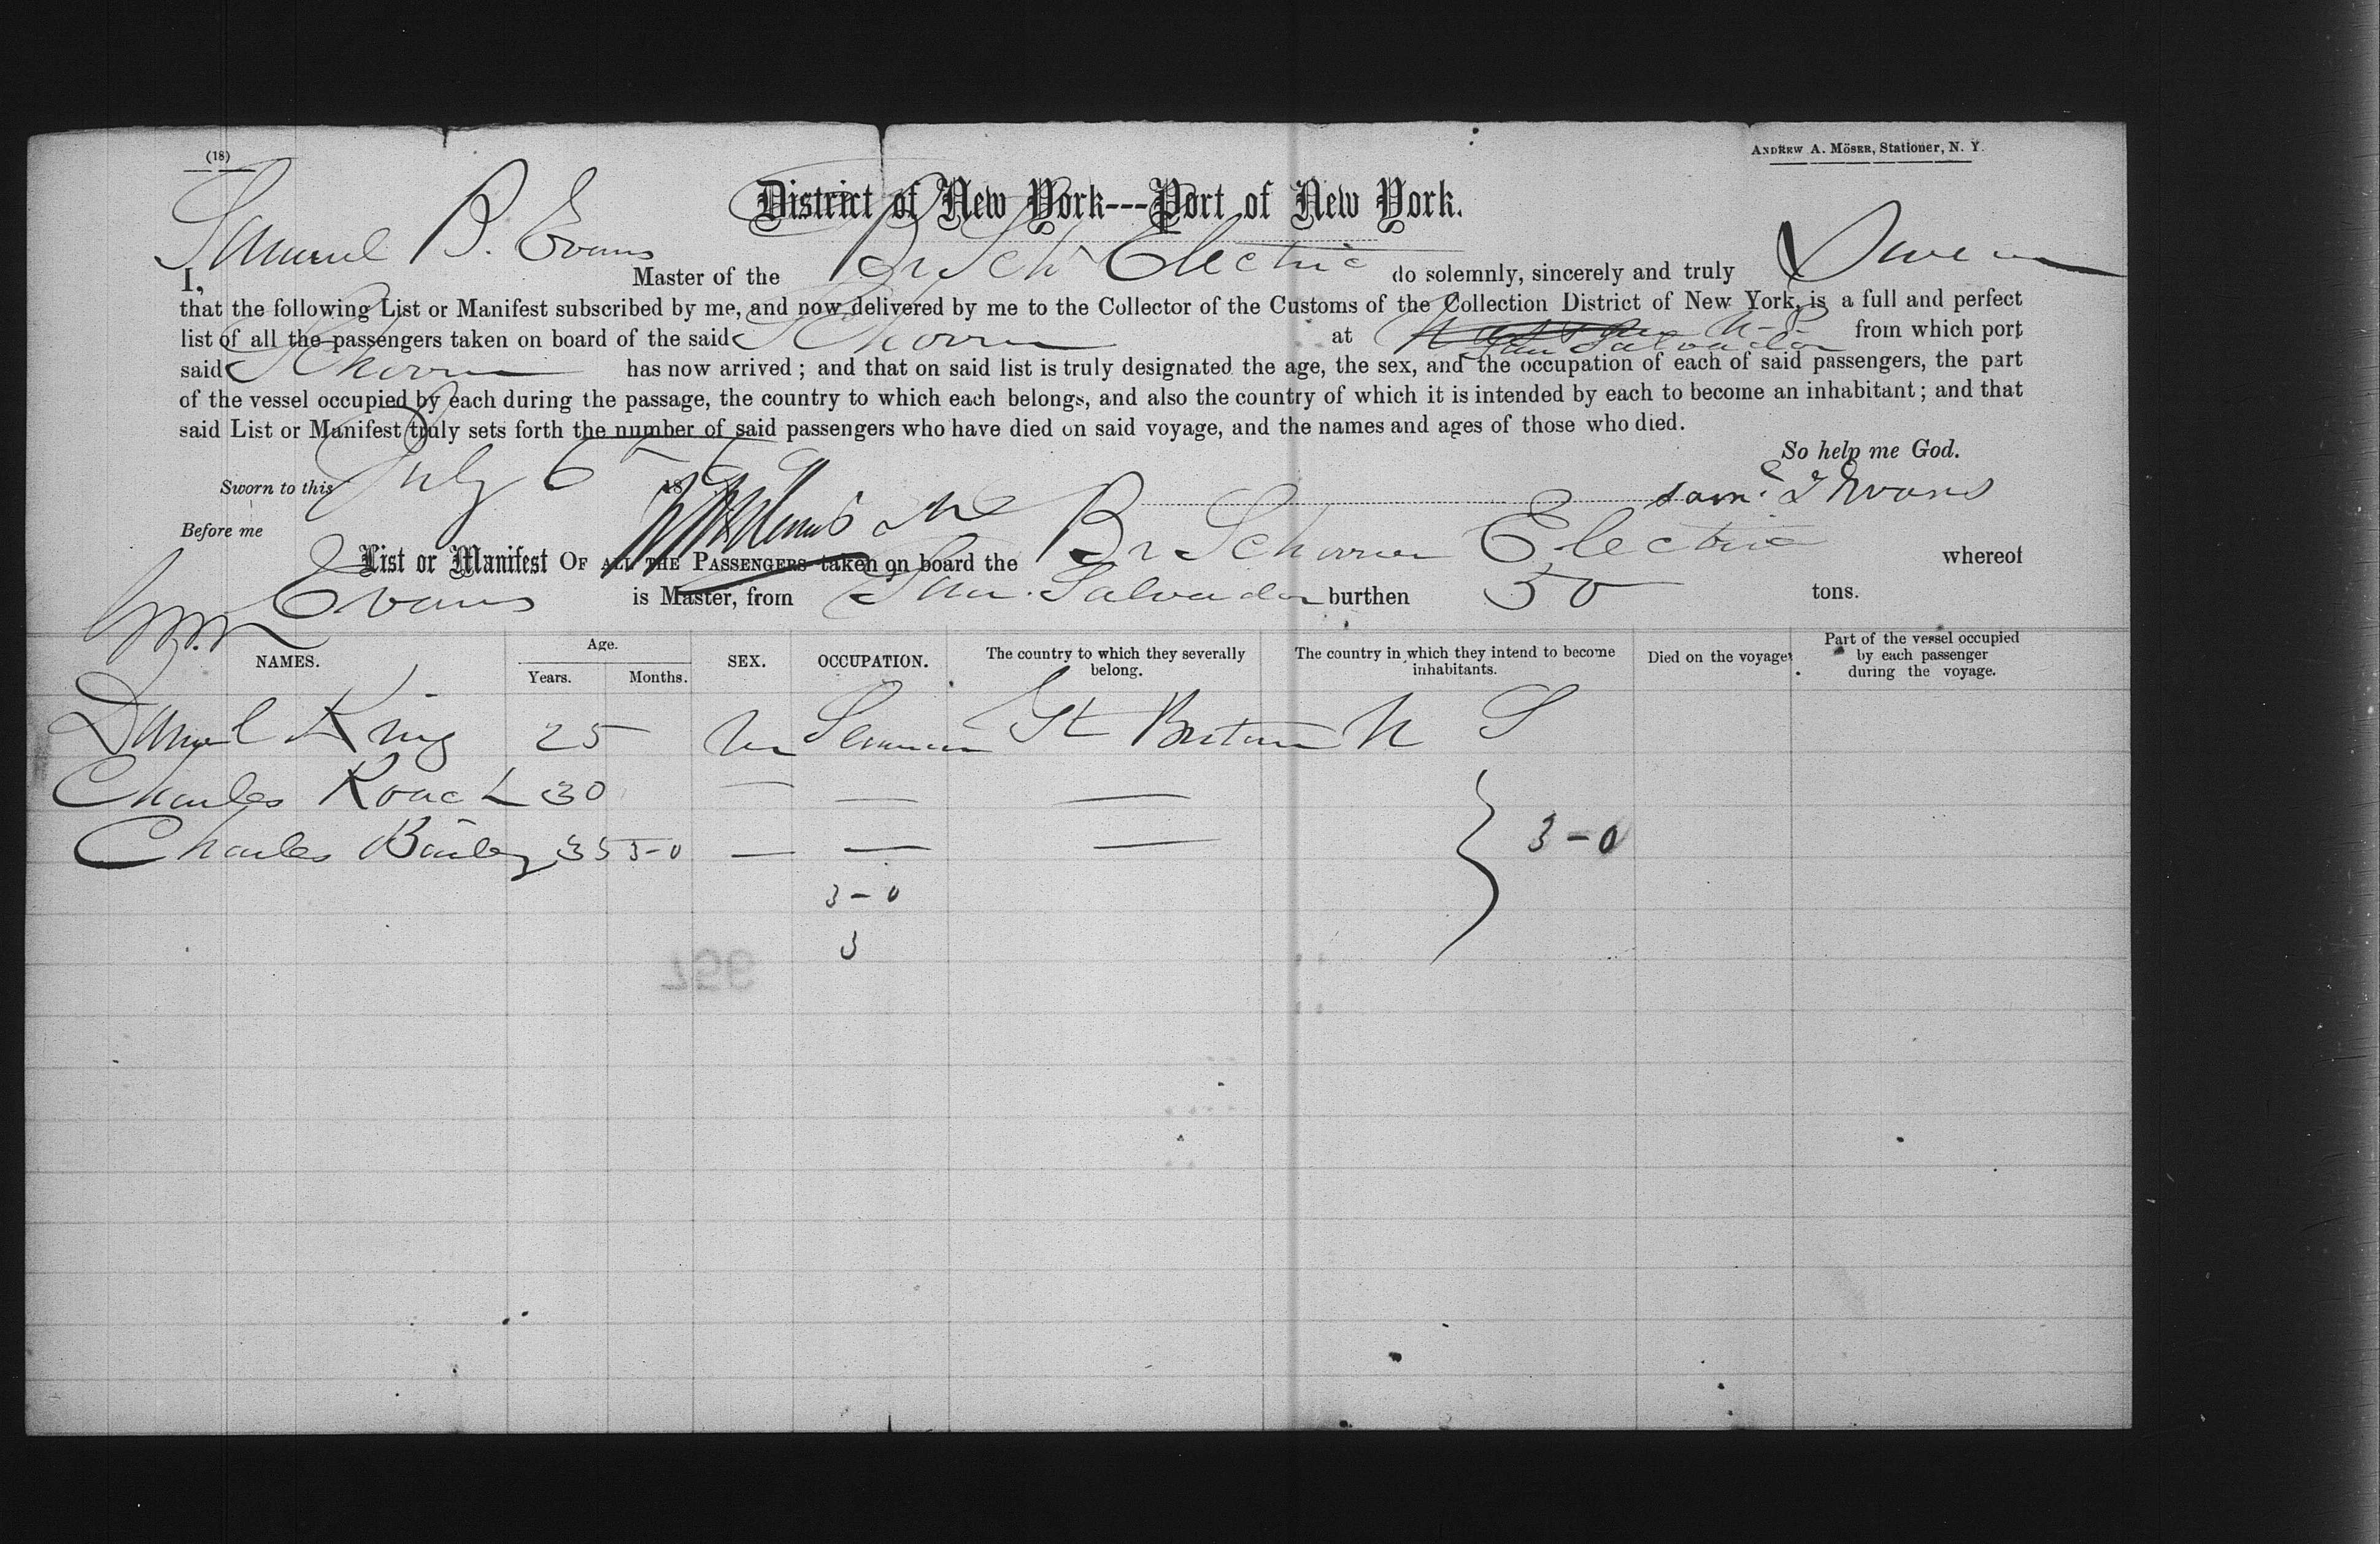 (18)
ANDREW A. MÖSER, Stationer, N. Y.
District of New York---Port of New York.
I, Samuel B. Evans Master of the Br Sch Electric do solemnly, sincerely and truly Swear
that the following List or Manifest subscribed by me, and now delivered by me to the Collector of the Customs of the Collection District of New York, is a full and perfect
list of all the passengers taken on board of the said Schooner at Nassau N. P. San Salvador from which port
said Schooner has now arrived; and that on said list is truly designated the age, the sex, and the occupation of each of said passengers, the part
of the vessel occupied by each during the passage, the country to which each belongs, and also the country of which it is intended by each to become an inhabitant; and that
said List or Manifest truly sets forth the number of said passengers who have died on said voyage, and the names and ages of those who died.
So help me God.
Sworn to this July 6 18 Evans
Before me
List or Manifest OF ALL THE PASSENGERS taken on board the Br Schooner Electric whereof
Evans is Master, from San Salvador burthen 50 tons.
NAMES. Age. Years. Months. SEX. OCCUPATION. The country to which they severally belong. The country in which they intend to become inhabitants. Died on the voyage. Part of the vessel occupied by each passenger during the voyage.
Daniel King 25 m Seaman Gt Britain U S
Charles Roach 30 — — —
Charles Bailey 35 3-0 — — — 3-0
3-0
3